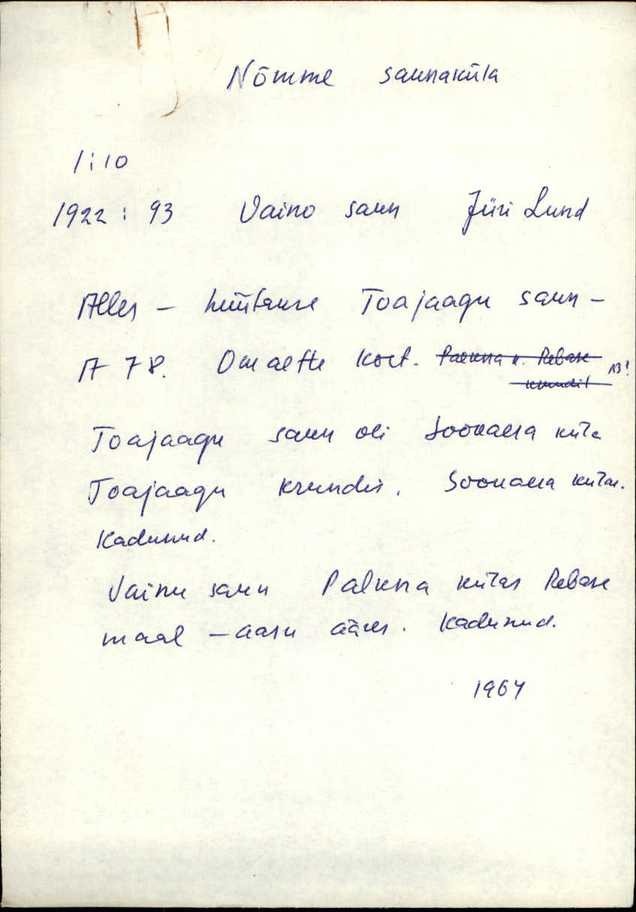 Nõmme saunaküla
1:10
1922: 93 Vaino saun Jüri Lund
Alles – hüütakse Toajaagu saun –
A 78. Omaette koht. Palukna k. Rebase NB!
krundil
Toajaagu saun oli Soonaea küla
Toajaagu krundis. Soonaea külas.
Kadunud.
Vainu saun Palukna külas Rebase
maal – aasu ääres. Kadunud.
1967